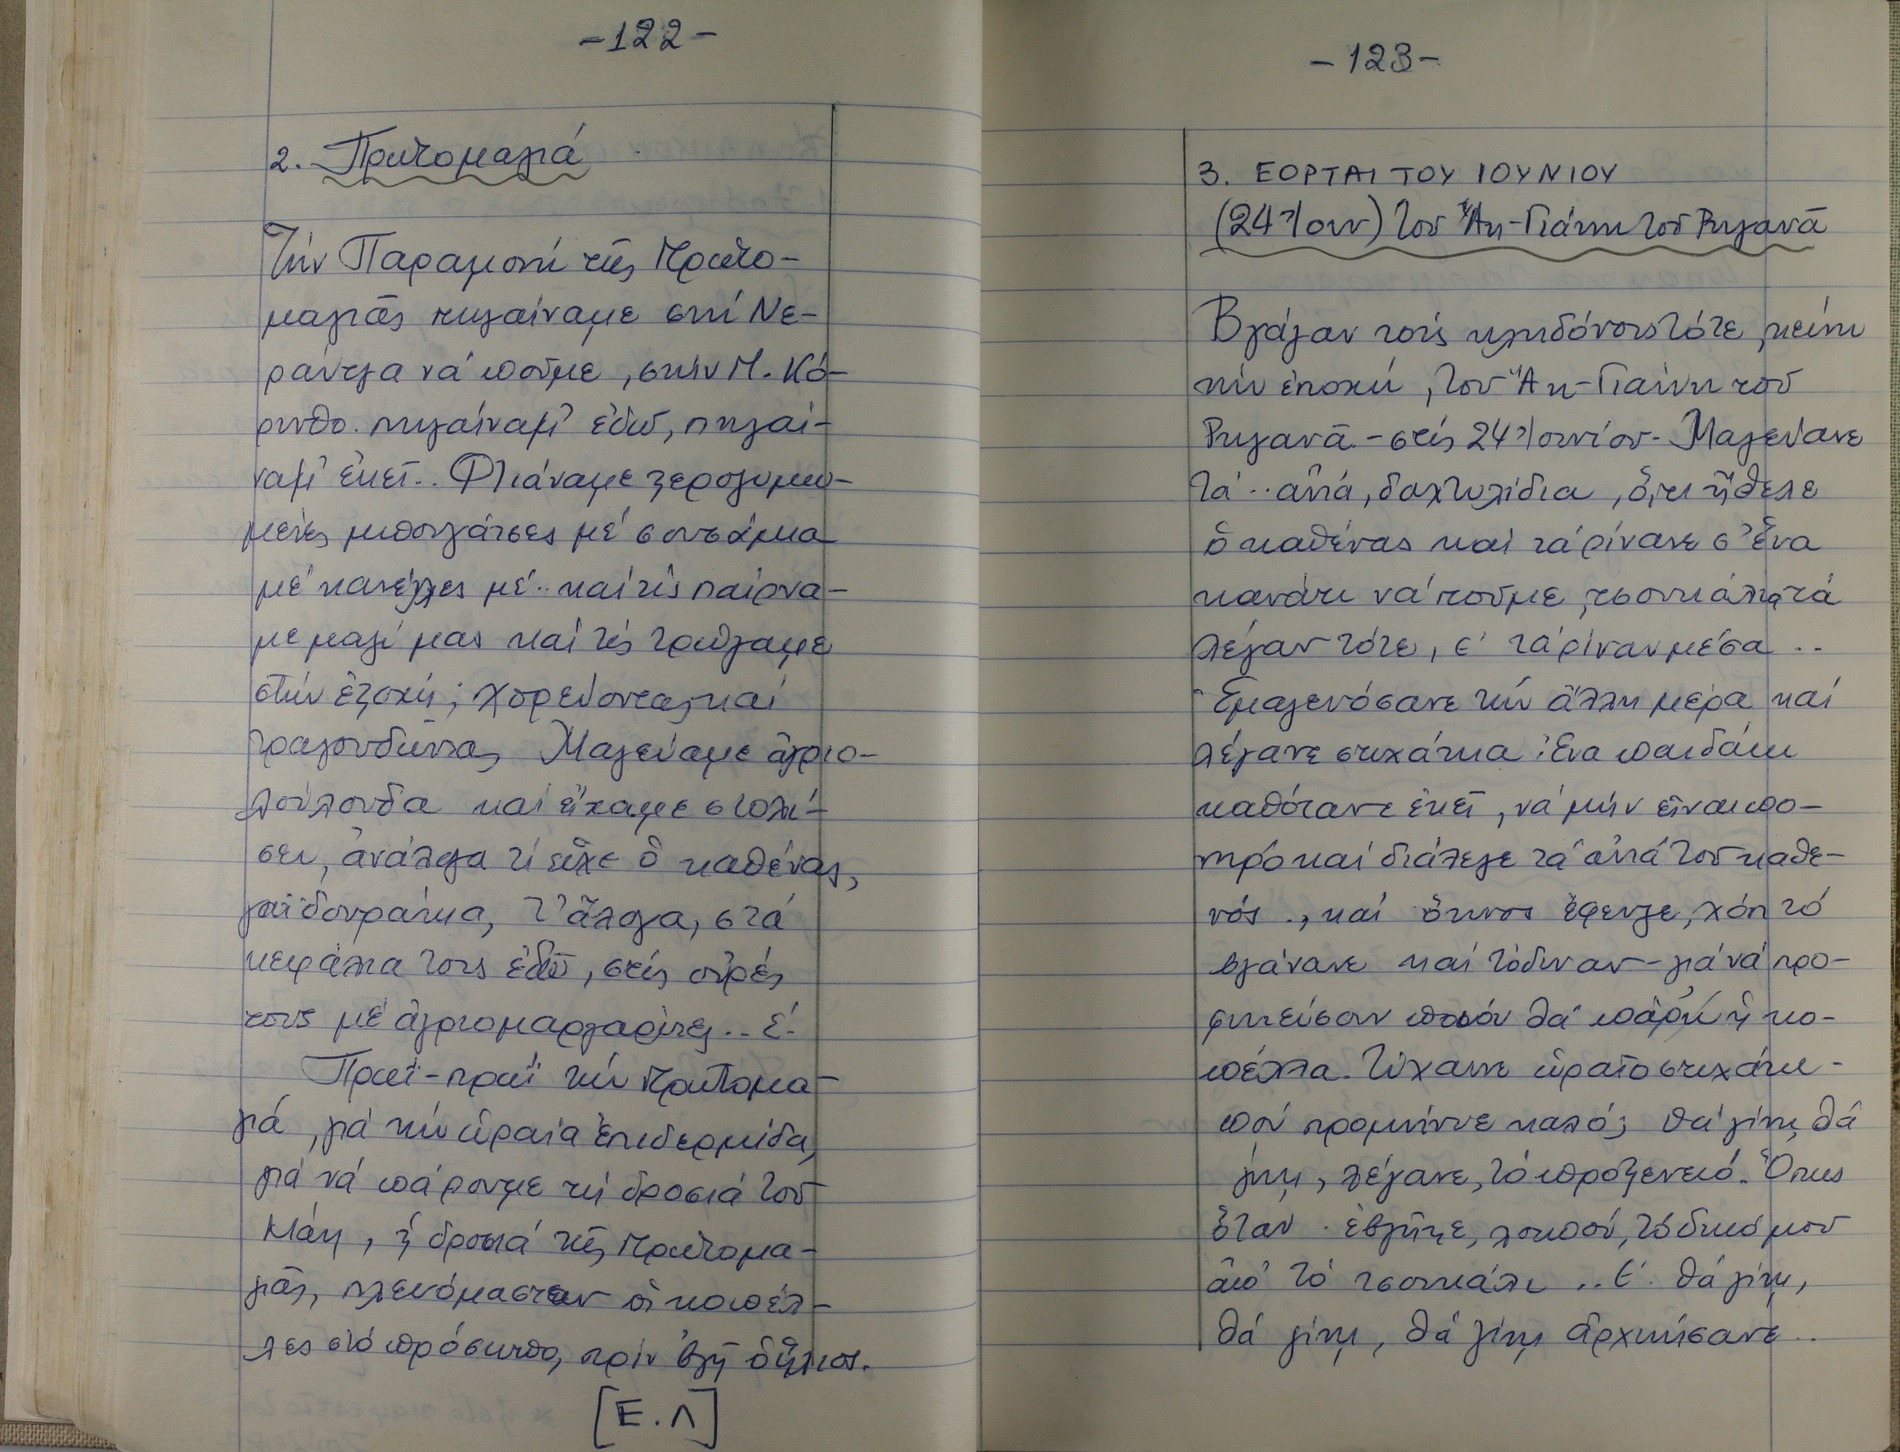 -122-
2. Πρωτομαγιά
Τήν Παραμονή τῆς Πρωτο-
μαγιᾶς πηγαίναμε στή Νε-
ράντζα νά ποῦμε, στήν Π. Κό-
ρινθο. πηγαίναμ' ἐδῶ, πηγαί-
ναμ' ἐκεῖ.. Φτιάναμε ξεροζυμω-
μένες μπουγάτσες μέ σουσάμια
μέ κανέλλες μέ.. καί τίς παίρνα-
με μαζί μας καί τίς τρώγαμε
στήν ἐξοχή; χορεύοντας καί
τραγουδώντας Μαζεύαμε ἀγριο-
λούλουδα καί εἴχαμε στολί-
σει, ἀνάλογα τί εἶχε ὁ καθένας,
γαϊδουράκια, τ' ἄλογα, στά
κεφάλια τους ἐδῶ, στίς οὐρές
τους μέ ἀγριομαργαρίτες.. Ε΄.
Πρωΐ-πρωΐ τήν Πρωτομα-
γιά, γιά τήν ὡραία ἐπιδερμίδα,
γιά νά πάρουμε τή δροσιά τοῦ
Μάη, ἡ δροσιά τῆς Πρωτομα-
γιᾶς, πλενόμαστεαν οἱ κοπέλ-
λες στό πρόσωπο, πρίν βγῆ ὁ ἥλιος.
[Ε.Λ]
-123-
3. ΕΟΡΤΑΙ ΤΟΥ ΙΟΥΝΙΟΥ
(24 Ἰουν) Τοῦ Ἅη-Γιάννη τοῦ Ρηγανᾶ
Βγάζαν τούς κληδόνους τότε, κείνη
τήν ἐποχή, τοῦ Ἅη-Γιάννη τοῦ
Ρηγανᾶ - στίς 24 Ἰουνίου - Μαζεύανε
τά.. αὐτά, δαχτυλίδια, ὅ,τι ἤθελε
ὁ καθένας καί τά ρίνανε σ' ἕνα
κανάτι νά ποῦμε, τσουκάλια τά
λέγαν τότε, ε΄ τά ρίναν μέσα..
Ἐμαζευόσανε τήν ἄλλη μέρα καί
λέγανε στιχάκια. Ἕνα παιδάκι
καθότανε ἐκεῖ, νά μήν εἶναι πο-
νηρό καί διάλεγε τά αὐτά τοῦ καθε-
νός., καί ὅποιος ἔφευγε, χόπ τό
βγάνανε καί τόδιναν - γιά νά προ-
φητεύσουν ποιόν θά πάρῃ ἡ κο-
πέλλα. Τύχαινε ὡραῖο στιχάκι -
πού προμήνυε καλό; θά γίνῃ, θά
γίνῃ, λέγανε, τό προξενειό. Ὅπως
ὅταν. ἐβγῆκε, λοιπόν, τό δικό μου
ἀπό τό τσουκάλι.. Ε΄. θά γίνῃ,
θά γίνῃ, θά γίνῃ ἀρχινήσανε..